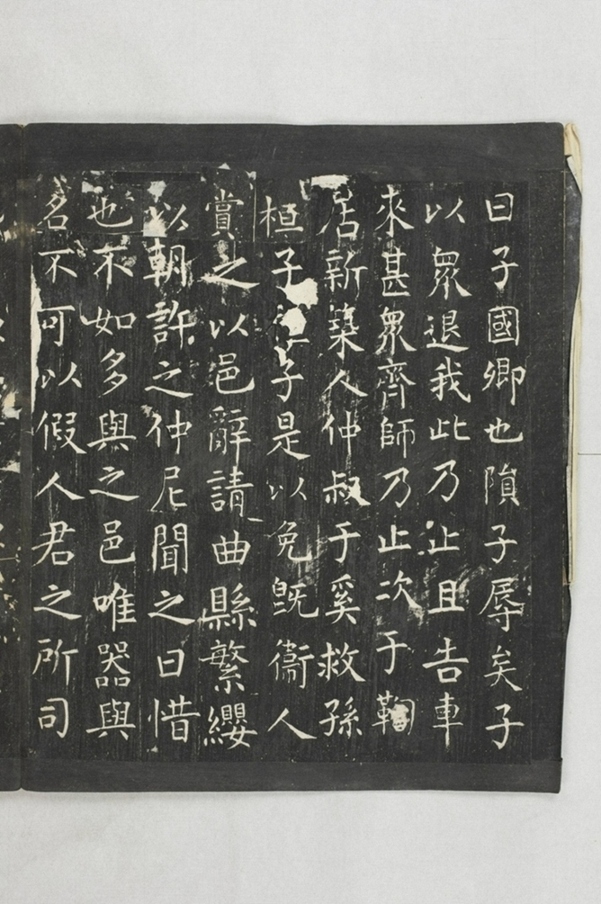 曰子國卿也隕子辱矣子
以衆退我此乃止且告車
來甚衆齊師乃止次于鞫
居新築人仲叔于奚救孫
桓子子是以免既衞人
賞之以邑辭請曲縣繁纓
以朝許之仲尼聞之曰惜
也不如多與之邑唯器與
名不可以假人君之所司